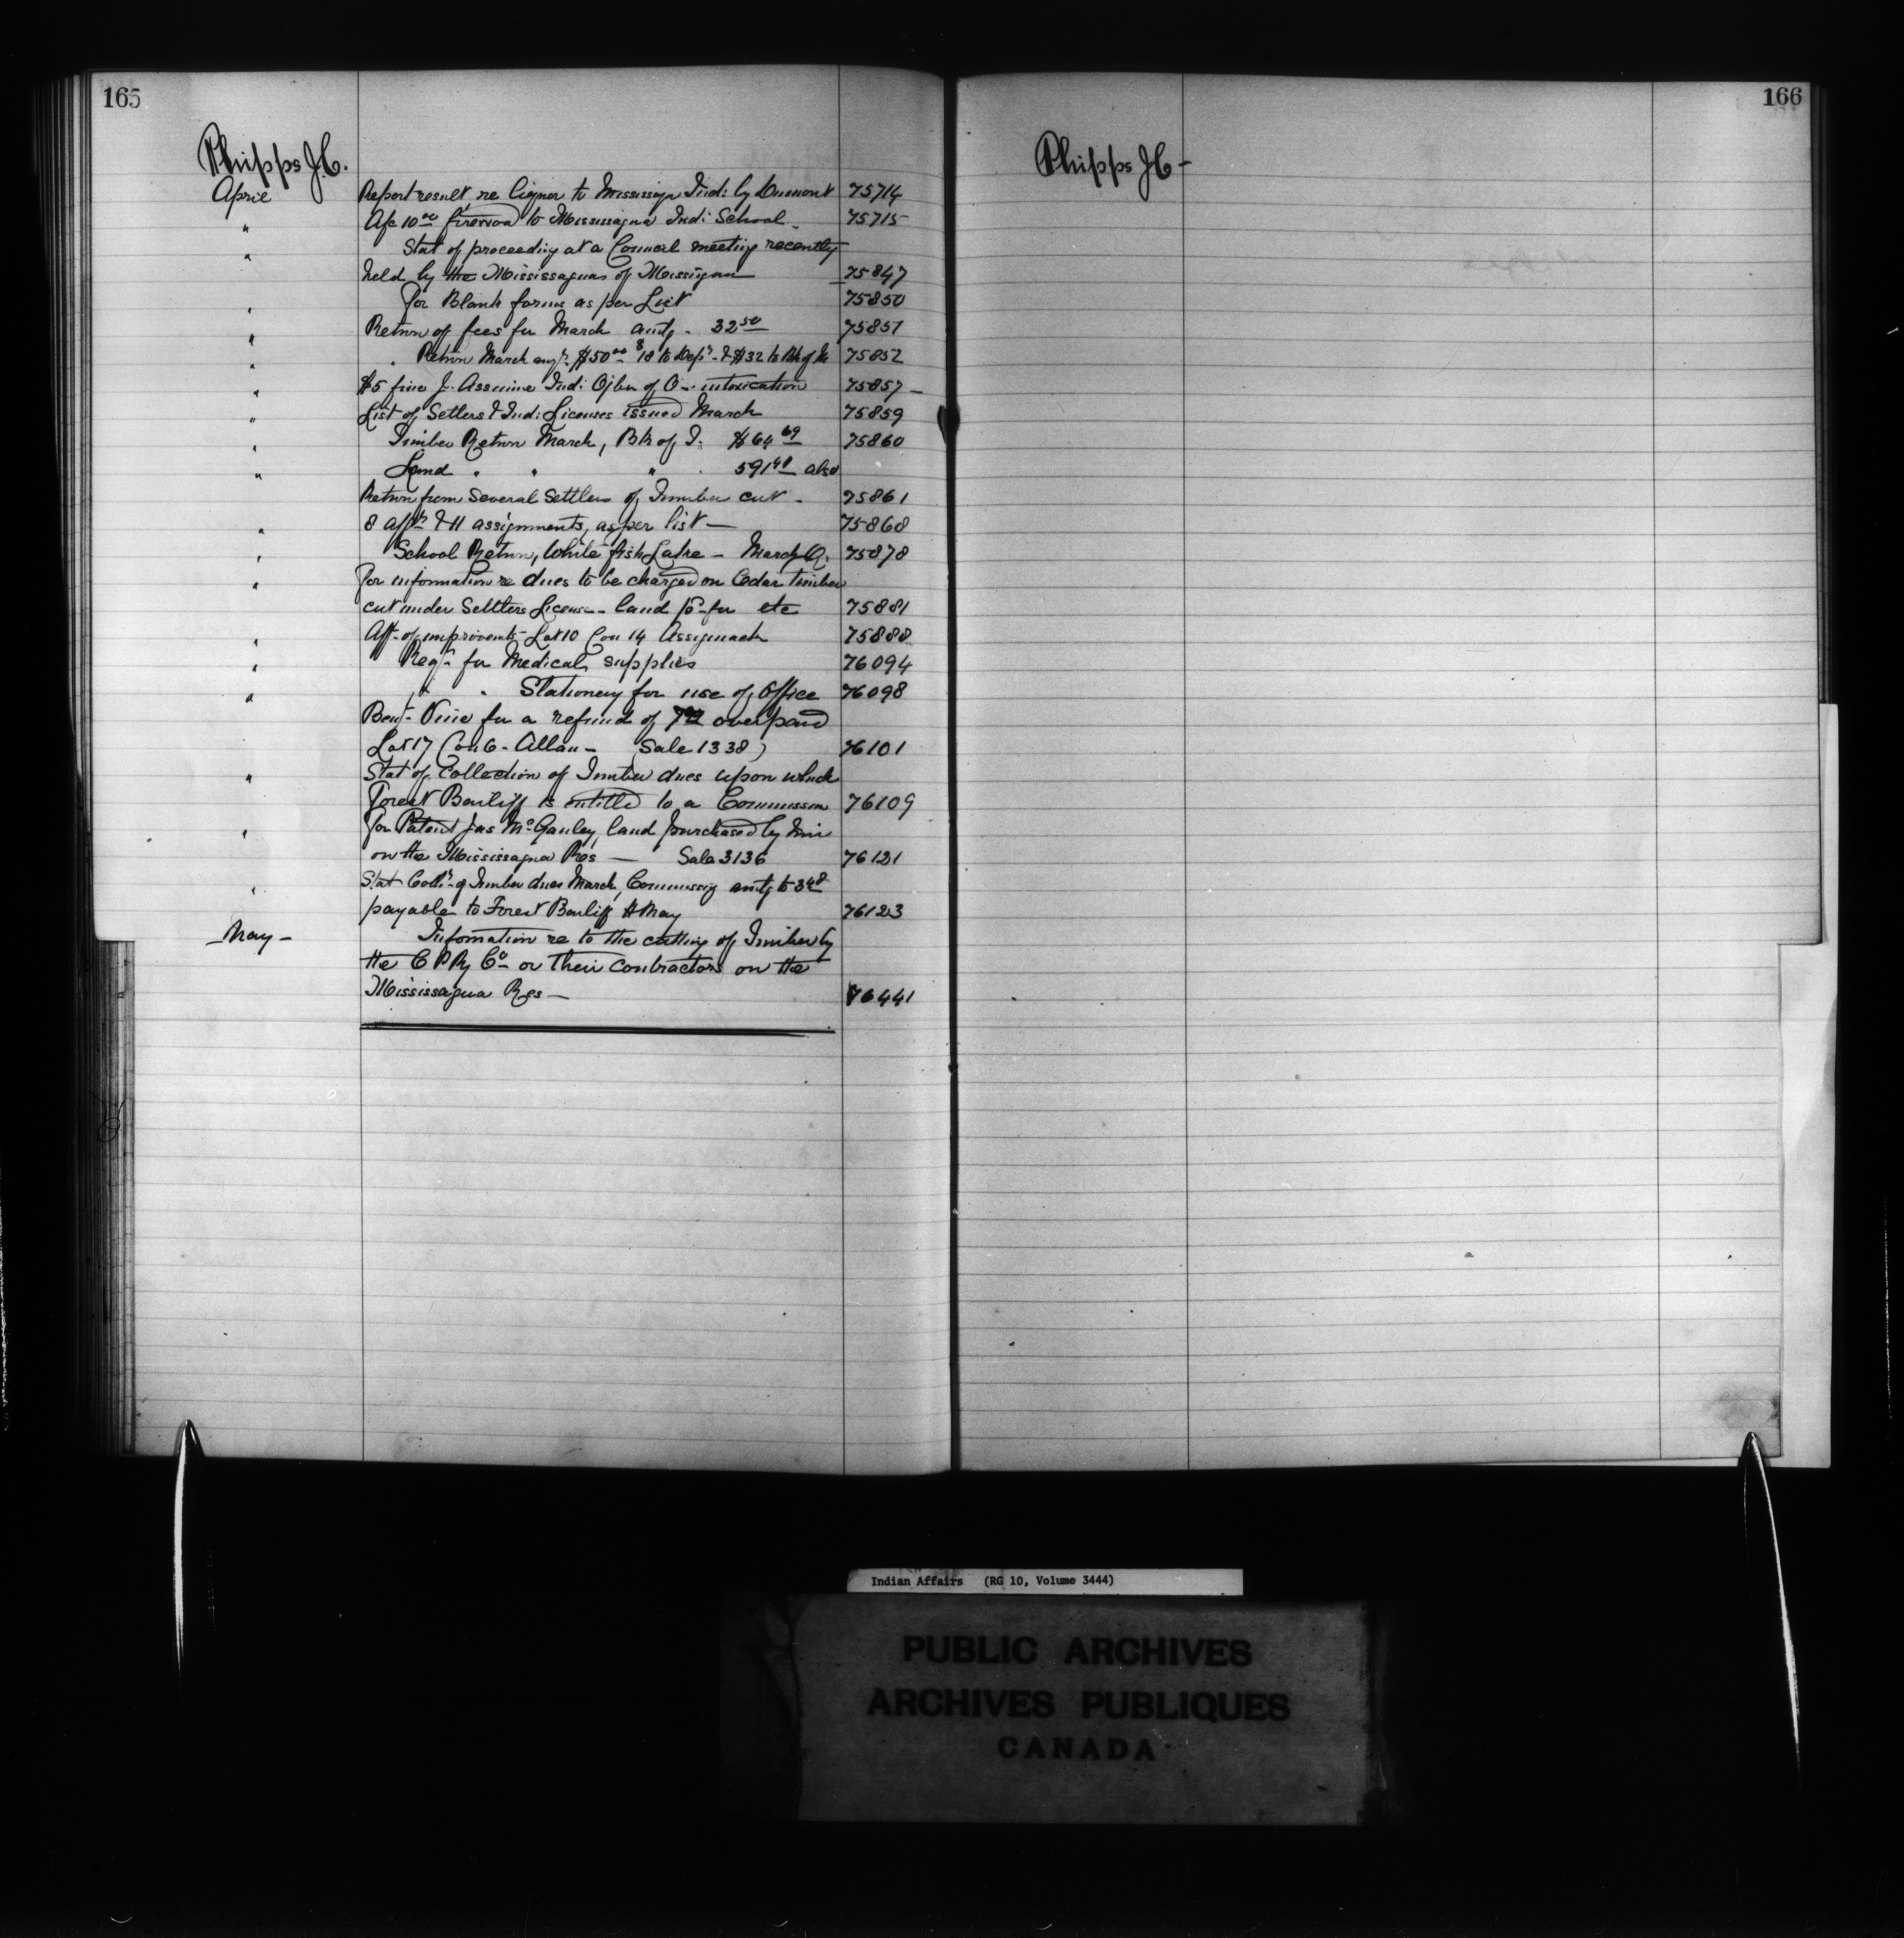 165
Phipps J.C.
April Report result re liquor to Mississagua Ind: by Dumont 75714
" A/c 10 00 firewood to Mississagua Ind: School - 75715
" Stat of proceeding at a Council meeting recently
held by the Mississaguas of Mississagua 75847
" for Blank forms as per List 75850
" Return of fees for March amtg - 32 50 75851
" " Return March $50 00 18 to Dep - & $32 to Bk of M 75852
" $5 fine J. Assinine Ind: Ojbw of O - intoxication 75857 -
" List of Setlers & Ind: Licenses issued March 75859
" Timber Return March, Bk of I. $64 69 75860
" Land " " " 591 48 also
Return from Several Settlers of Timber cut - 75861
" 8 appns & 11 assignments, as per list - 75868
" School Return, White fish Lake - March Q. 75878
" for information re dues to be charged on Cedar timber
cut under Settlers License - land etc 75881
" Aff. of improvents - Lot 10 Con 14 Assiginack 75888
" Reqn for Medical supplies 76094
" " " Stationery for use of Office 76098
Benj - Vine for a refund of overpaid
Lot 17 Con 6 - Allan - (Sale 1338) 76101
" Stat of Collection of Timber dues upon which
Forest Bailiff is entitled to a Commission 76109
" for Patent Jas McGauley, land purchased by him
on the Mississagua Res - Sale 3136 76121
" Stat Colln of Timber dues March, Commissg amtg to 3 48
payable to Forest Bailiff H May 76123
- May - Infomation re to the cutting of Timber by
the C P Ry Co - or their contractors on the
Mississagua Res - 76441
166
Phipps J C -
Indian Affairs (RG 10, Volume 3444)
PUBLIC ARCHIVES
ARCHIVES PUBLIQUES
CANADA